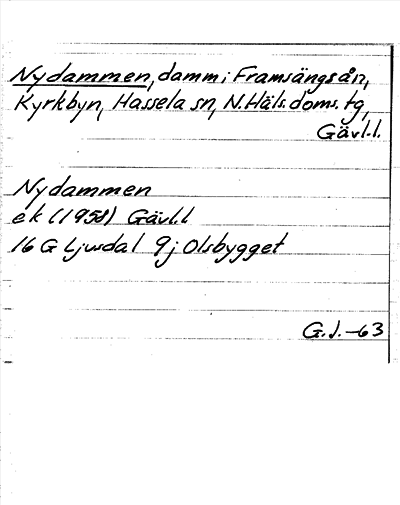 Nydammen, damm i Framsängsån,
Kyrkbyn, Hassela sn, N.Häls.doms.tg,
Gävl.l.
Nydammen
ek (1958) Gävl.l
16 G Ljusdal 9j Olsbygget
G.J.-63